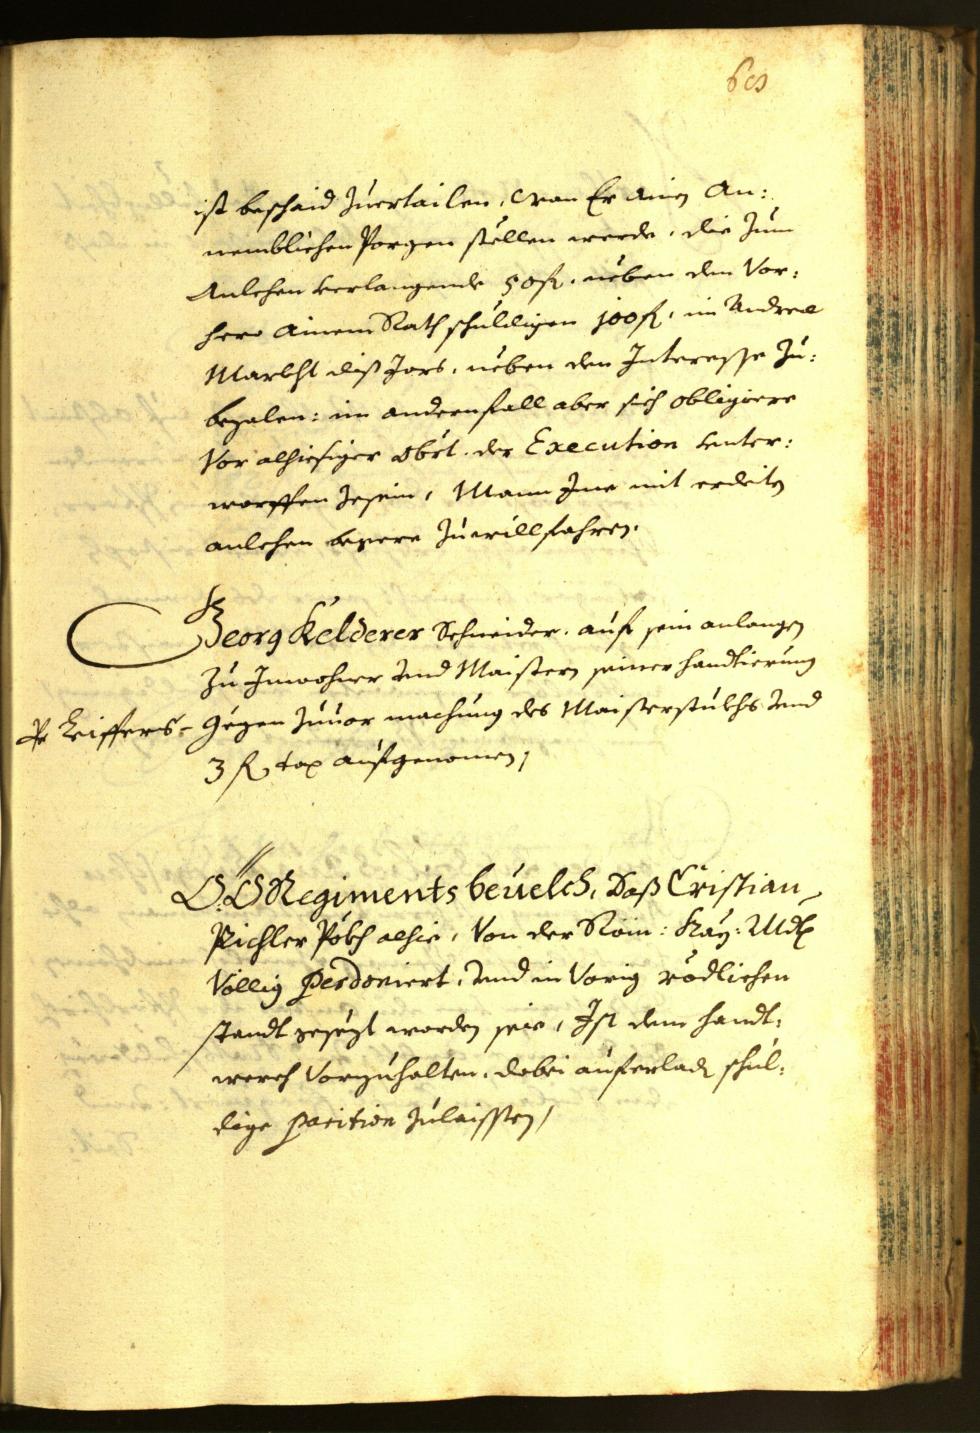 ist beschaid zuertailen, wan Er ainen An:
nemblichen Porgen stellen werde, die zum
Anlehen verlangende 50 fl. neben den Vor:
hero ainem Rath schuldigen 100 fl, im Andree
Markht diß Jars, neben den Interesse zu:
bezalen: im andern fall aber sich obligiere
Vor alhiesiger Obrt. der Execution unter:
worffen zesein, Mann Ime mit erdeiten
anlehen begere zuwillfahren.
Georg Kelderer Schneider. auf sein anlangen
zu Inwohner und Maistern seiner handtierung
Leiffers=
gegen zuuor machung des Maisterstukhs und
3 fl tax aufgenomen,
O:Ö Regiments beuelch, Daß Cristian
Pichler Pökh alhie, Von der Röm: Kay: Mdt
Völlig perdoniert, und in Vorig rödlichen
standt gesezt worden seie, Ist dem handt:
werch Vorzuhalten, dabei auferladt schul:
dige parition zulaissten,